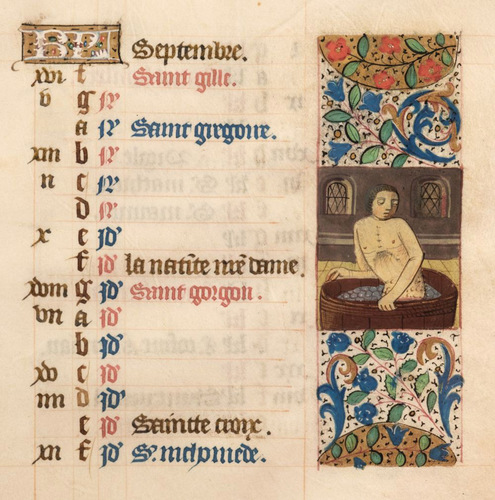 KL Septembre.
xvi f Saint gille.
v g N̄
a N̄ Saint gregoire.
xiii b N̄
ii c N̄
d N̄
x e Id
f Id la natiūte nr̄e dame.
xviii g Id Saint gorgon.
vii a Id
b Id
xv c Id
iiii d Id
e Id Saincte croix.
xii f Id